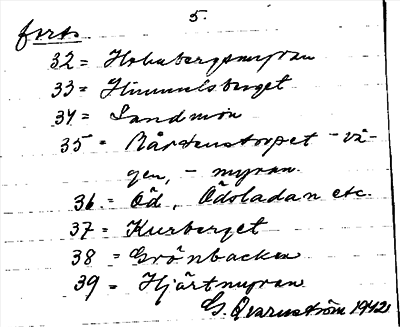 5.
forts.
32 = Holmbergsmyran
33 = Himmelsberget
34 = Sandmon
35 = Mårtenstorpet - vä-
gen, - myran.
36 = Öd, Ödoladan etc.
37 = Kurberget
38 = Grönbacken
39 = Hjärtmyran
G. Qvarnström 1942